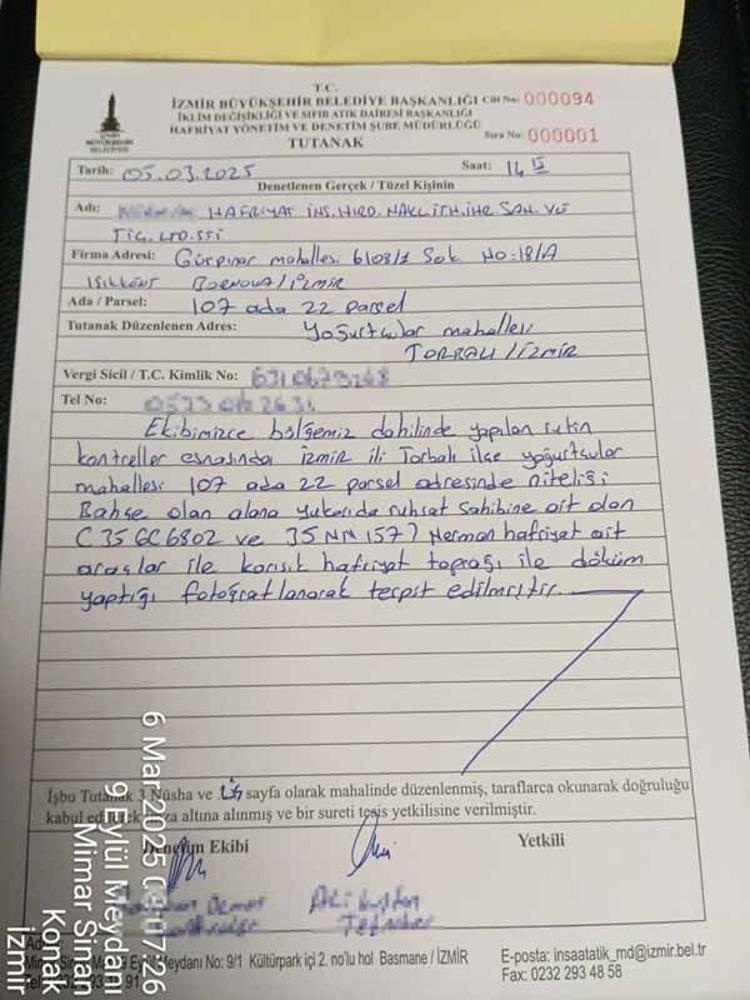 T.C.
İZMİR BÜYÜKŞEHİR BELEDİYE BAŞKANLIĞI Cilt No: 000094
İKLİM DEĞİŞİKLİĞİ VE SIFIR ATIK DAİRESİ BAŞKANLIĞI
HAFRİYAT YÖNETİM VE DENETİM ŞUBE MÜDÜRLÜĞÜ
Sıra No: 000001
TUTANAK
İZMİR
BÜYÜKŞEHİR
BELEDİYESİ
Tarih: 05.03.2025 Saat: 14 15
Denetlenen Gerçek / Tüzel Kişinin
Adı: HAFRİYAT İNŞ.HIRD.NAKL.İTH.İHR SAN. VE
TİC. LTD. ŞTİ
Firma Adresi: Gürpınar mahallesi 6108/1 Sok No:18/A
IŞIKKENT BORNOVA/İZMİR
Ada / Parsel: 107 ada 22 parsel
Tutanak Düzenlenen Adres: Yoğurtçular mahallesi
TORBALI/İZMİR
Vergi Sicil / T.C. Kimlik No:
Tel No:
Ekibimizce bölgemiz dahilinde yapılan rutin
kontroller esnasında İzmir ili Torbalı ilçe yoğurtçular
mahallesi 107 ada 22 parsel adresinde niteliği
Bahse olan alana yukarıda ruhsat sahibine ait olan
C 35 GC 6802 ve 35 NN 1577 Herman hafriyat ait
araçlar ile karışık hafriyat toprağı ile döküm
yaptığı fotoğraflanarak tespit edilmiştir.
İşbu Tutanak 3 Nüsha ve sayfa olarak mahalinde düzenlenmiş, taraflarca okunarak doğruluğu
kabul edilerek imza altına alınmış ve bir sureti tesis yetkilisine verilmiştir.
Denetim Ekibi Yetkili
Eylül Meydanı No: 9/1 Kültürpark içi 2. no'lu hol Basmane / İZMİR
E-posta: insaatatik_md@izmir.bel.tr
Fax: 0232 293 48 58
6 Mar 2025 09:07:26
9 Eylül Meydanı
Mimar Sinan
Konak
İzmir